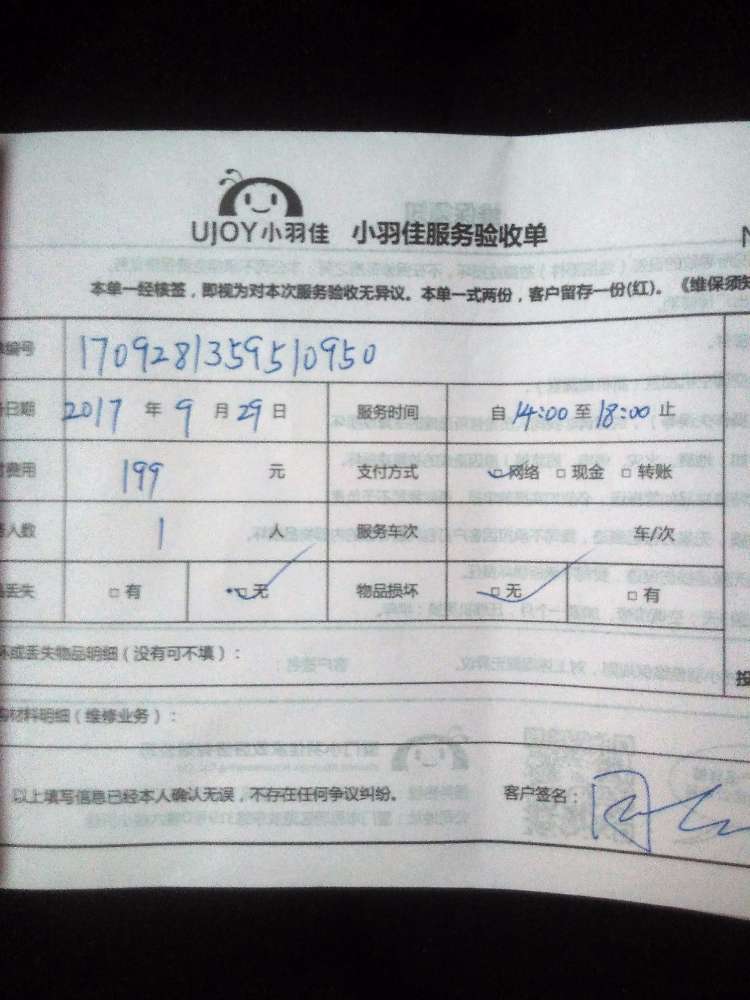 UJOY小羽佳 小羽佳服务验收单
本单一经核签，即视为对本次服务验收无异议。本单一式两份，客户留存一份(红)。《维保须知
编号 1709281359510950
日期 2017 年 9 月 29 日 服务时间 自 14:00 至 18:00 止
费用 199 元 支付方式 □网络 □现金 □转账
人数 1 人 服务车次 车/次
丢失 □有 □无 物品损坏 □无 □有
坏或丢失物品明细（没有可不填）：
材料明细（维修业务）：
以上填写信息已经本人确认无误，不存在任何争议纠纷。 客户签名：